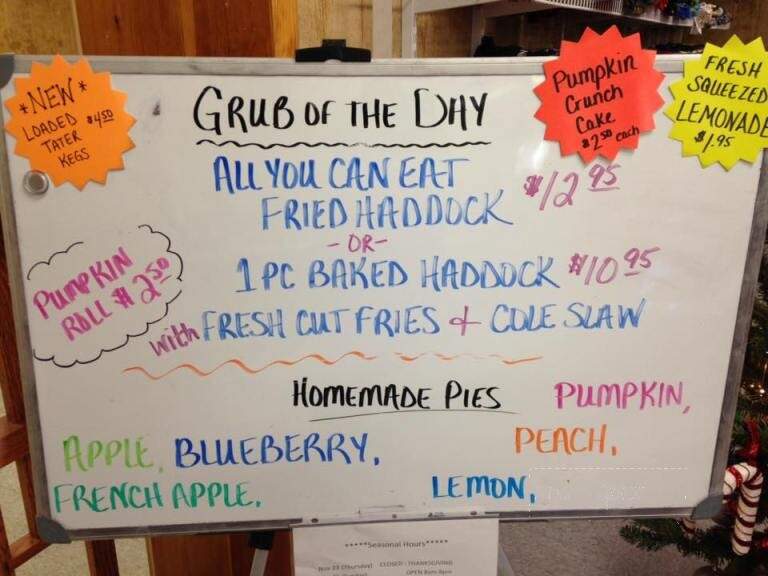 *NEW*
LOADED $4.50
TATER
KEGS
GRUB OF THE DAY
Pumpkin
Crunch
Cake
$2.50 each
FRESH
SQUEEZED
LEMONADE
$1.95
ALL YOU CAN EAT
FRIED HADDOCK $12.95
- OR -
1 PC BAKED HADDOCK $10.95
with FRESH CUT FRIES & COLE SLAW
PUMPKIN
ROLL $2.50
HOMEMADE PIES PUMPKIN,
APPLE, BLUEBERRY, PEACH,
FRENCH APPLE, LEMON,
*****Seasonal Hours*****
CLOSED - THANKSGIVING